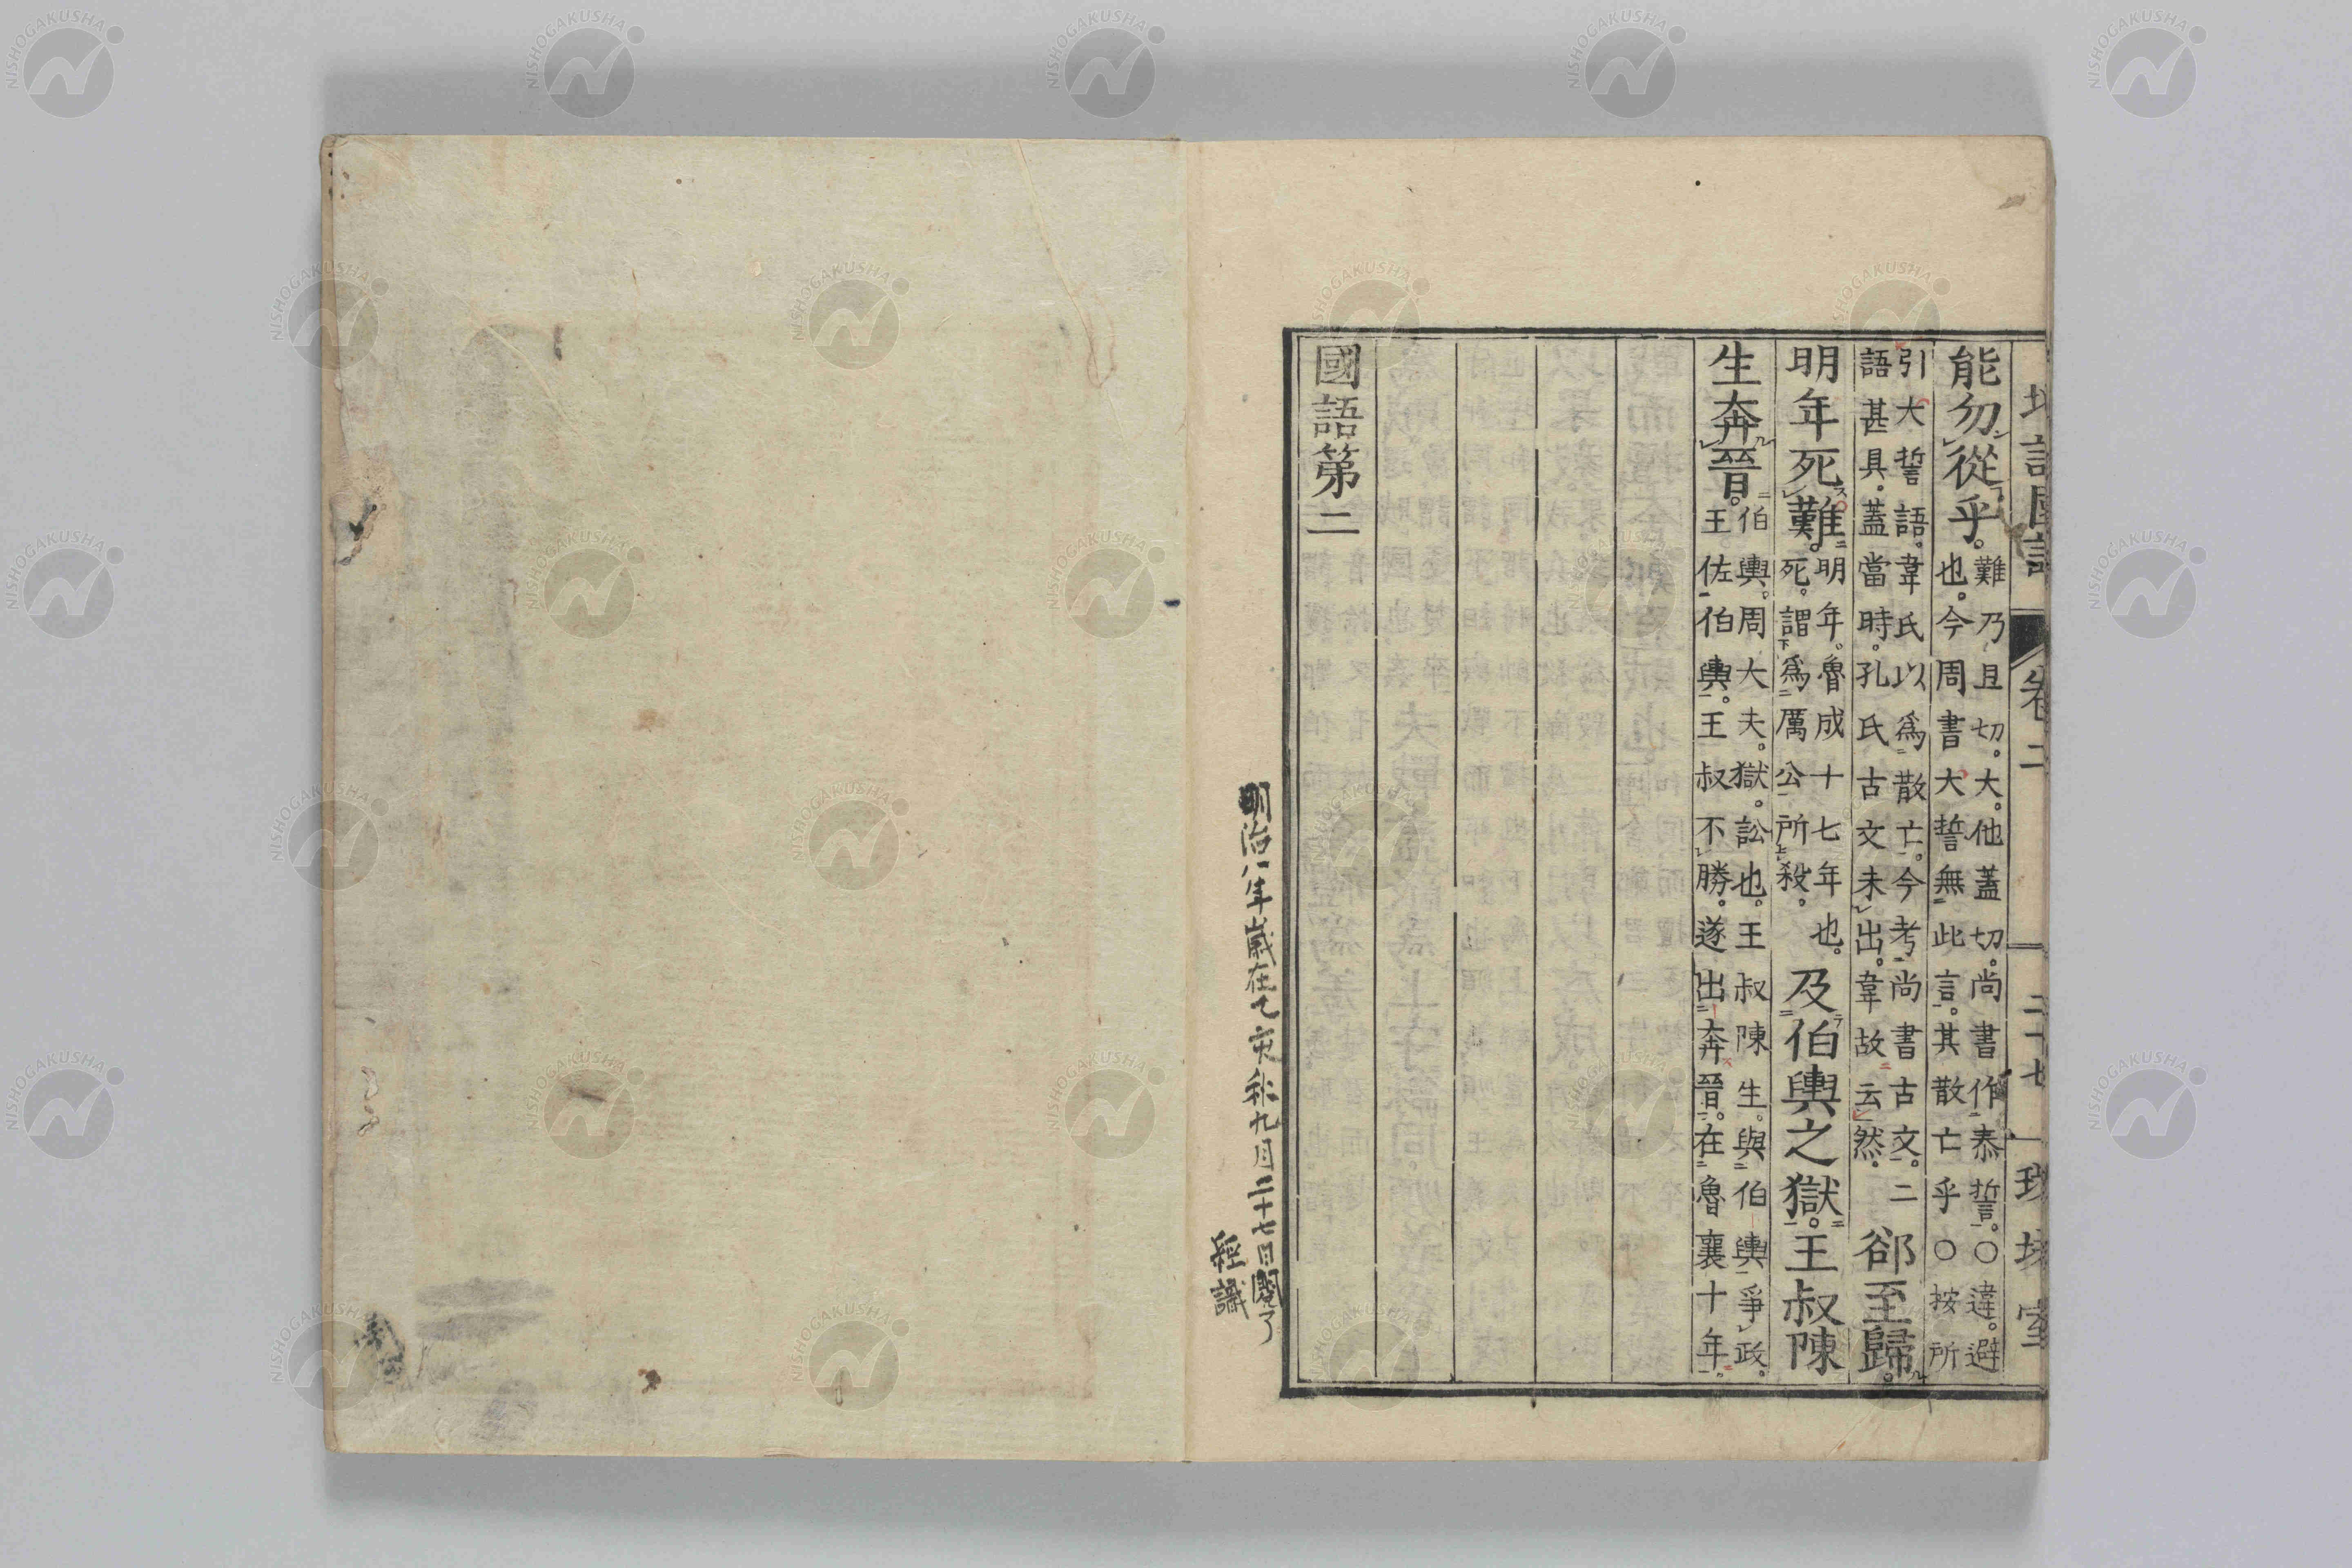 能勿從乎。難乃且切。大。他蓋切。尚書作泰誓。○違。避
也。今周書大誓無此言。其散亡乎○按所
引大誓語。韋氏以爲散亡。今考尚書古文。二
語甚具。蓋當時。孔氏古文未出。韋故云然。郤至歸。
明年死難。明年。魯成十七年也。
死。謂爲厲公所殺。及伯輿之獄。王叔陳
生奔晉。伯輿。周大夫。獄。訟也。王叔陳生。與伯輿爭政。
王佐伯輿。王叔不勝。遂出奔晉。在魯襄十年。
國語第二
明治八年歳在乙亥秋九月二十七日閲了
經識
卷二
二十七
NISHOGAKUSHA